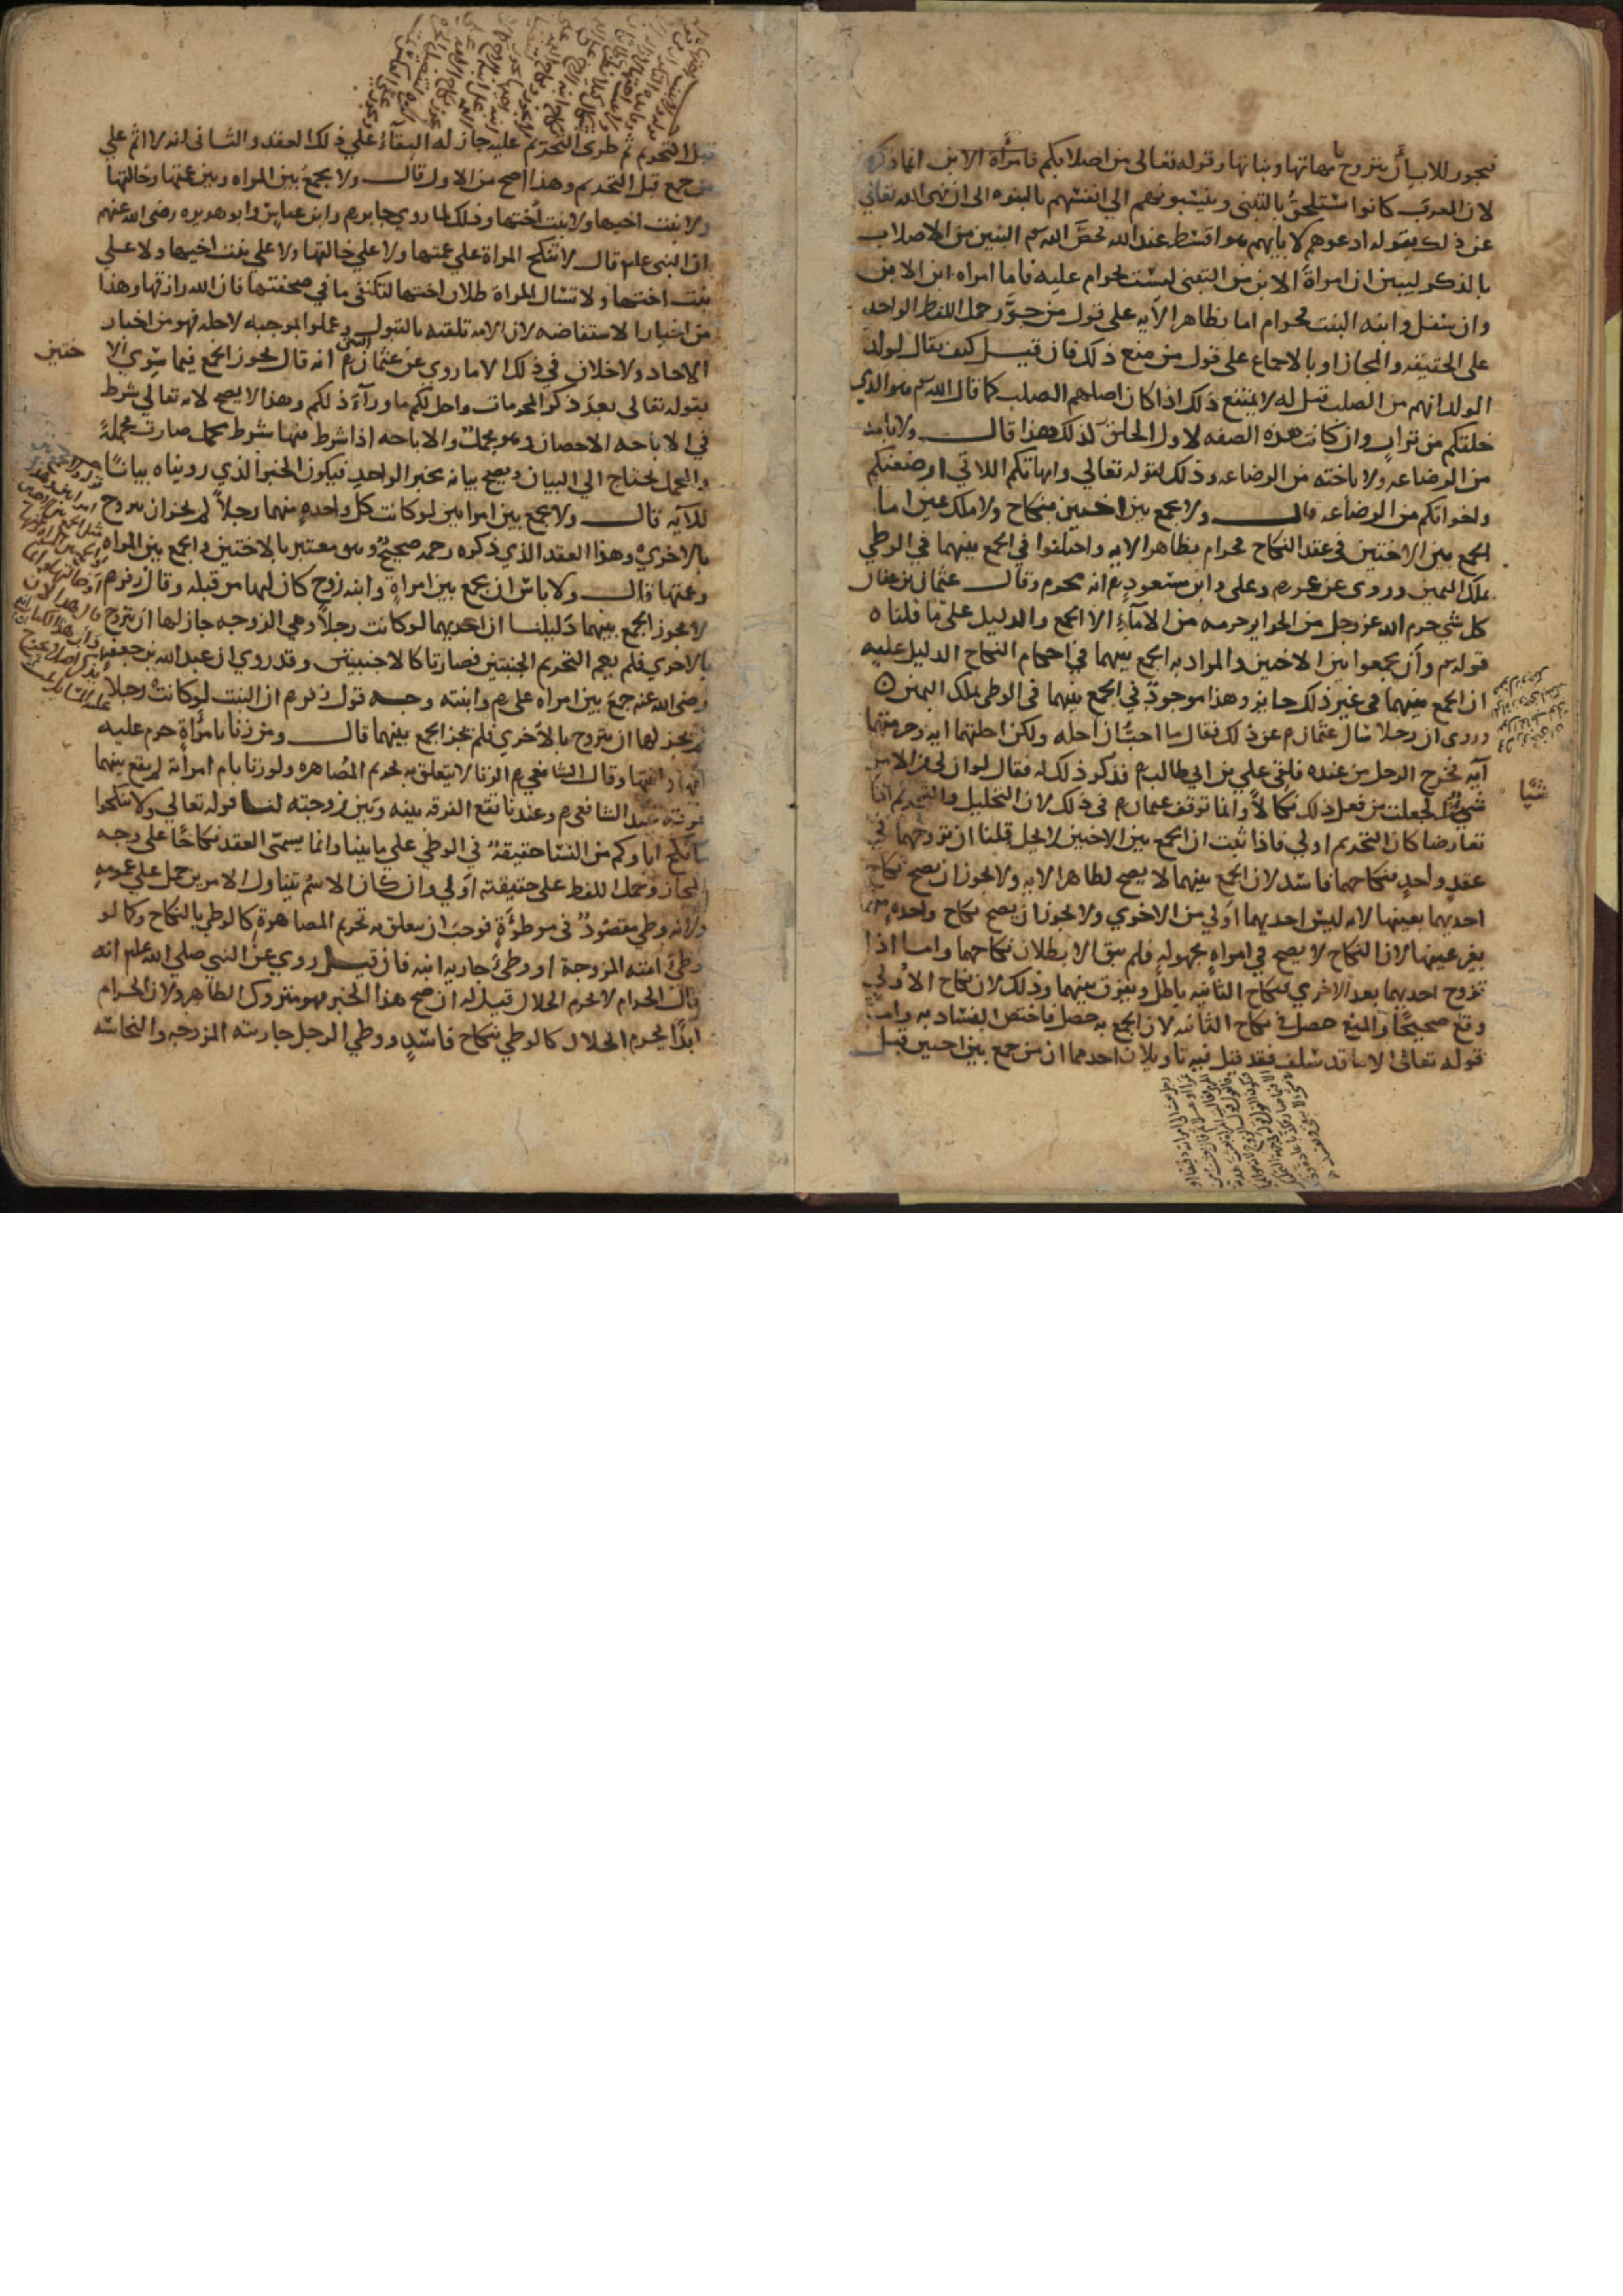 فيجوز للاب أن يتزوج بامهاتها وبناتها وقوله تعالى من اصلابكم فامرأة الابن انما ذكره
لان العرب كانوا تستلحق بالتبني وينسبونهم الي انفسهم بالبنوه الى ان نهى الله تعالي
عن ذلك بقوله ادعوهم لابايهم هو اقسط عند الله فخصّ الله تع البنين من الاصلاب
بالذكر ليبين ان امراة الابن من التبني ليست بحرام عليه فاما امراه ابن الابن
وان سفل وابنه البنت فحرام اما بظاهر الآيه على قول من جوّز حمل اللفظ الواحد
على الحقيقه والمجاز او بالاجماع على قول من منع ذلك فان قيل كيف يقال لولد
الولد انهم من الصلب قيل له لا يمتنع ذلك اذا كان اصلهم الصلب كما قال الله تع هو الذي
خلقكم من تراب وان كانت هذه الصفه لاول الخلق كذلك هذا قال ولا بامه
من الرضاعه ولا باخته من الرضاعه وذلك لقوله تعالي وامهاتكم اللاتي ارضعنكم
واخواتكم من الرضاعه قال ولا يجمع بين اختين بنكاح ولا ملك يمين اما
الجمع بين الاختين في عقد النكاح فحرام بظاهر الايه واختلفوا في الجمع بينهما في الوطي
بملك اليمين وروى عن عمر رم وعلى وابن مسعود رم انه محرم وقال عثمان بن عفان
كل شي حرم الله عز وجل من الحراير حرمه من الامآء الا الجمع والدليل على ما قلناه
قوله تع وأن تجمعوا بين الاختين والمراد به الجمع بينهما في احكام النكاح الدليل عليه
ان الجمع بينهما في غير ذلك جايز وهذا موجود في الجمع بينهما في الوطى بملك اليمين ه
وروى ان رجلا سال عثمان رم عن ذلك فقال ما احبّ ان احله ولكن احلتهما ايه وحرمتهما
آيه فخرج الرجل من عنده فلقي علي بن ابي طالب رم فذكر ذلك له فقال لو ان لي من الامر
شيئا لجعلت من فعل ذلك نكالاً وانما توقف عثمان رم في ذلك لان التحليل والتحريم اذا
تعارضا كان التحريم اولي فاذا ثبت ان الجمع بين الاختين لا يحل قلنا ان تزوجهما في
عقد واحد فنكاحهما فاسد لان الجمع بينهما لا يصح لظاهر الايه ولا يجوز ان يصح نكاح
احديهما بعينها لانه ليس احديهما اولي من الاخري ولا يجوز ان يصح نكاح واحده منهما
بغير عينها لان النكاح لا يصح في امراه مجهوله فلم يبق الا بطلان نكاحهما واما اذا
تزوج احديهما بعد الاخري فنكاح الثانيه باطل ويفرق بينهما وذلك لان نكاح الأولي
وقع صحيحًا والمنع حصل في نكاح الثانيه لان الجمع به حصل فاختص الفساد به واما
قوله تعالى الا ما قد سلف فقد قيل فيه تاويلان احدهما ان من جمع بين اختين قبل
شيًا
قبل التحريم ثم طرى التحريم عليه جاز له البقاء علي ذلك العقد والثاني انه لا اثم علي
من جمع قبل التحريم وهذا اصح من الاول قال ولا يجمع بين المراه وبين عمتها وخالتها
ولا بنت اخيها ولا بنت اختها وذلك لما روي جابر رم وابن عباس وابو هريره رضى الله عنهم
ان النبي علم قال لا تنكح المراة علي عمتها ولا علي خالتها ولا علي بنت اخيها ولا علي
بنت اختها ولا تسال المراة طلاق اختها لتكتفي ما في صحفتها فان الله رازقها وهذا
من اخبار الاستفاضه لان الامه تلقته بالقبول وعملوا بموجبه لاجله فهو من اخبار
الاحاد ولا خلاف في ذلك الا ما روى عن عثمان البتي رم انه قال يجوز الجمع فيما سوى الا ختين
بقوله تعالى بعد ذكر المحرمات واحل لكم ما ورآء ذلكم وهذا لا يصح لانه تعالي شرط
في الاباحه الاحصان وهو مجمل والاباحه اذا شرط فيها شرط مجمل صارت مجملةً
والمجمل يحتاج الي البيان ويصح بيانه بخبر الواحد فيكون الخبر الذي رويناه بيانًا
للآيه قال ولا يجمع بين امراتين لو كانت كل واحده منهما رجلاً لم يجز ان يتزوج
بالاخري ه وهذا العقد الذي ذكره رحمه صحيح وهو معتبر بالاختين والجمع بين المراه
وعمتها قال ولا باس ان يجمع بين امراة وابنه زوج كان لها من قبله وقال زفر رم
لا يجوز الجمع بينهما دليلنا ان احديهما لو كانت رجلاً وهي الزوجه جاز لها ان تتزوج
بالاخري فلم يعم التحريم الجنبتين فصارتا كالاجنبيتين وقد روي ان عبد الله بن جعفر
رضى الله عنه جمع بين امراه على رم وابنته وجه قول زفر رم ان البنت لو كانت رجلاً
لم يجز لها ان تتزوج بالاخري فلم يجز الجمع بينهما قال ومن زنا بامرأة حرم عليه
امها وابنتها وقال الشافعي رم الزنا لا يتعلق به تحريم المصاهره ولو زنا بام امرأته لم يقع بينهما
فرقة عند الشافعي رم وعندنا تقع الفرقه بينه وبين زوجته لنا قوله تعالي ولا تنكحوا
ما نكح اباوكم من النسا حقيقة في الوطي علي ما بينا وانما يسمّى العقد نكاحًا على وجه
المجاز وحمل اللفظ على حقيقته اولي وان كان الاسم تيناول الامرين حمل علي عمومه
ولانه وطي مقصود في موطوءة فوجب ان يتعلق به تحريم المصاهرة كالوطي بالنكاح وكما لو
وطئ امته المزوجة او وطئ جارية ابنه فان قيل روي عن النبي صلي الله علم انه
قال الحرام لا يحرم الحلال قيل له ان صح هذا الخبر فهو متروك الظاهر ولان الحرام
ابدًا يحرم الحلال كالوطي بنكاح فاسد ووطي الرجل جاريته المزوجه والنجاسه